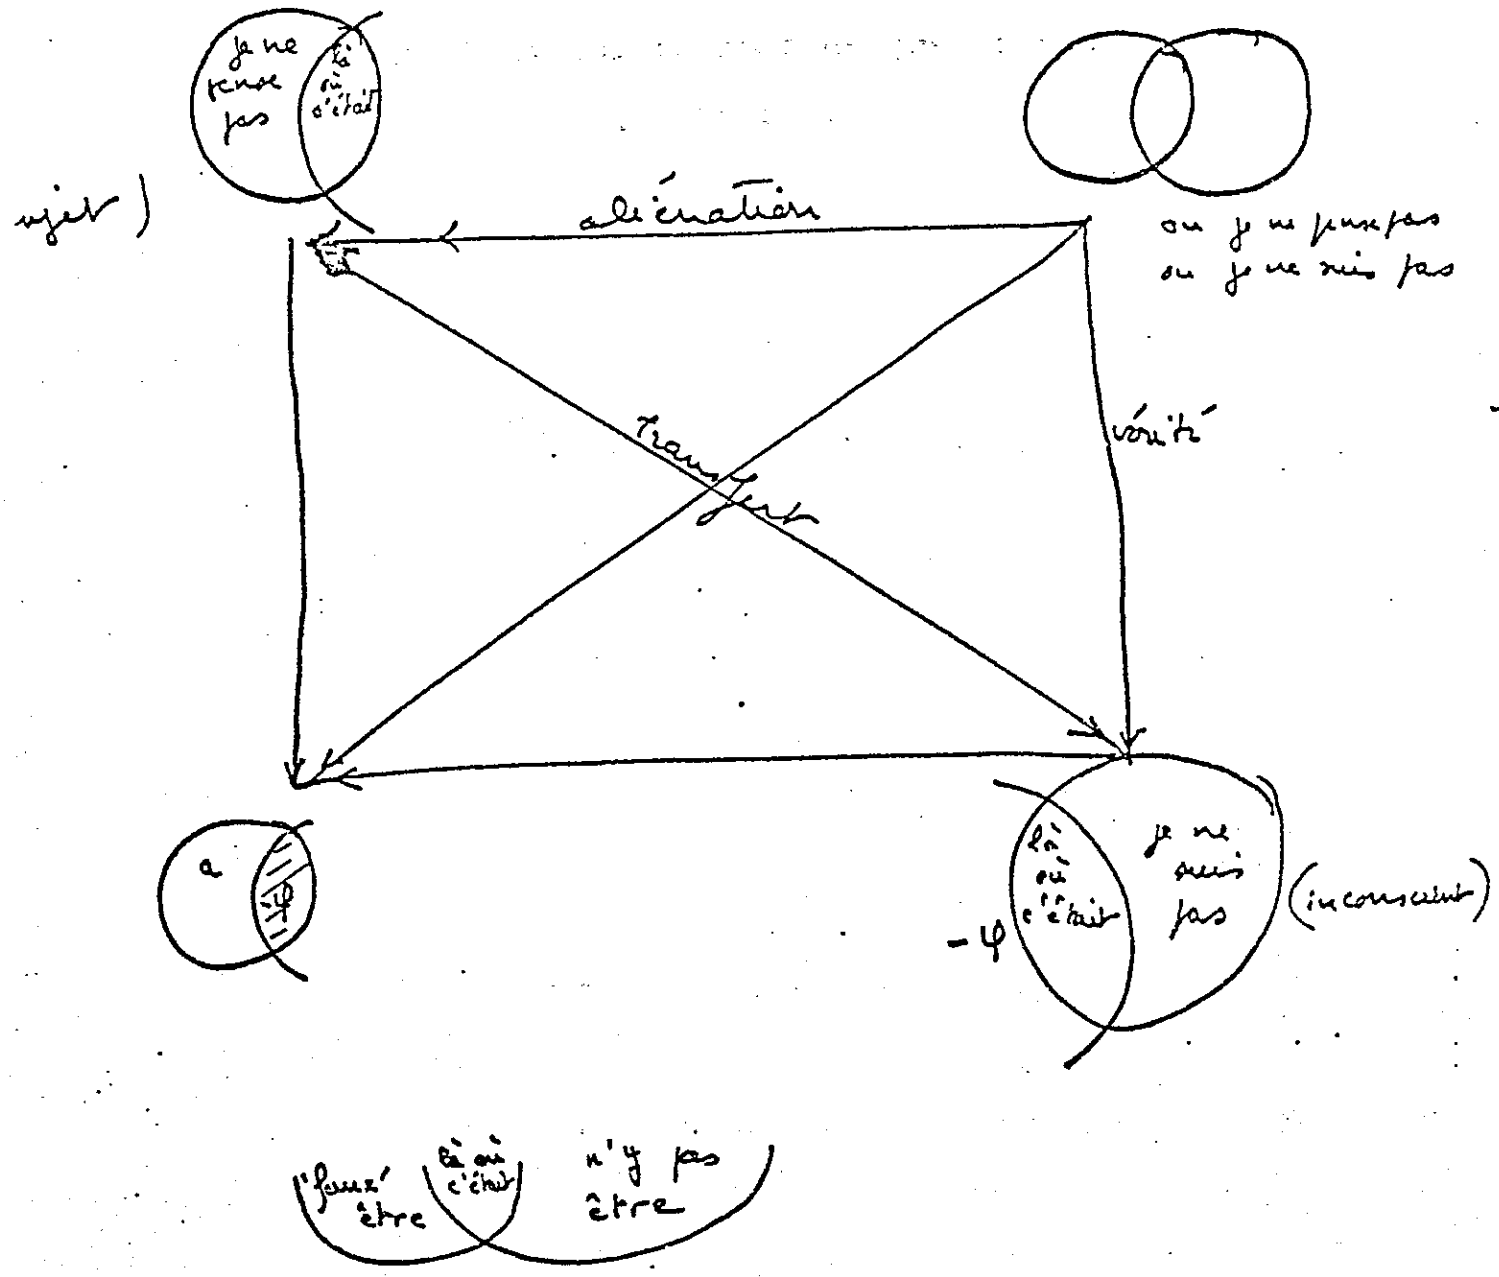 je ne
pense
pas
là
où
c'était
ujet)
aliénation
ou je ne pense pas
ou je ne suis pas
vérité
Transfert
a
-φ
là
où
c'était
je ne
suis
pas
-φ
(inconscient)
'faux'
être
là où
c'était
n'y pas
être